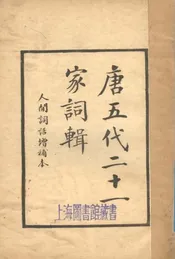 唐五代二十一
家詞輯
人間詞話增補本
上海圖書館藏書